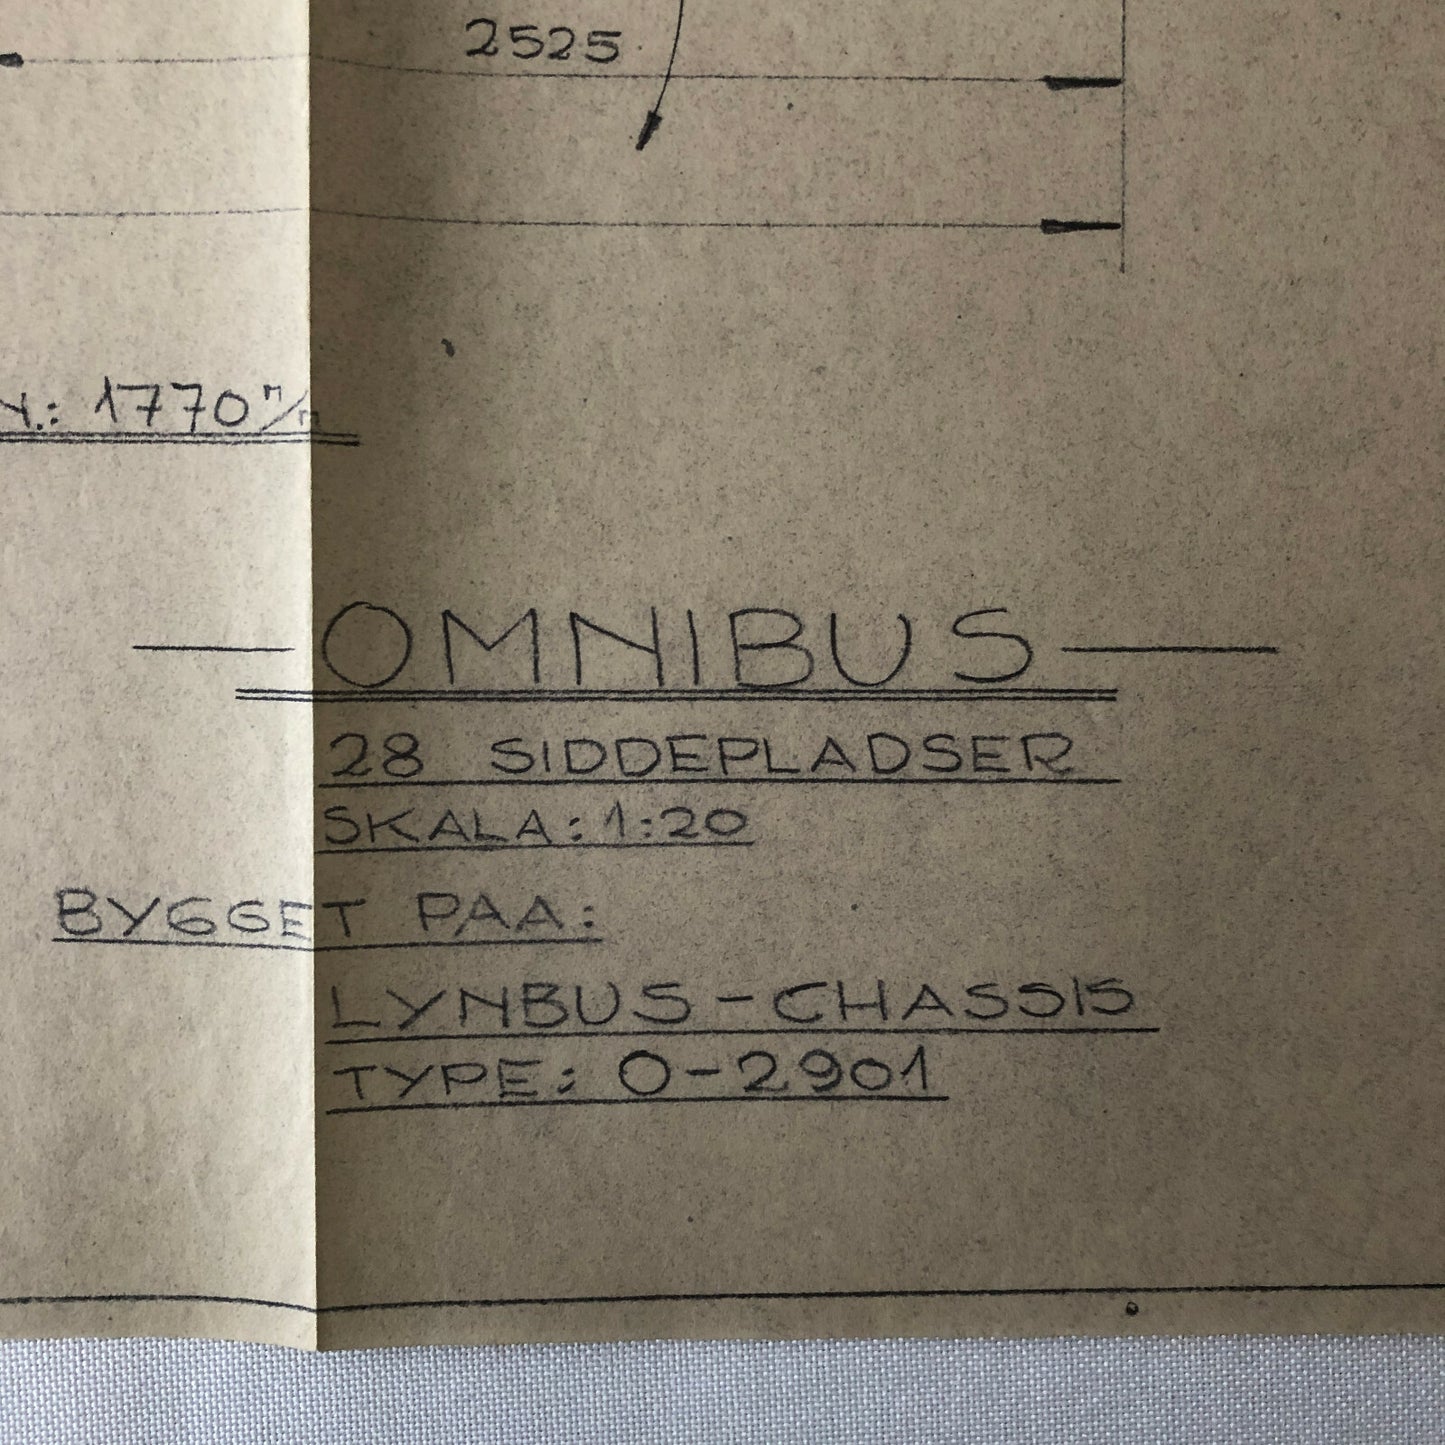 2525
1770 m/m
OMNIBUS
28 SIDDEPLADSER
SKALA: 1:20
BYGGET PAA:
LYNBUS-CHASSIS
TYPE: O-2901